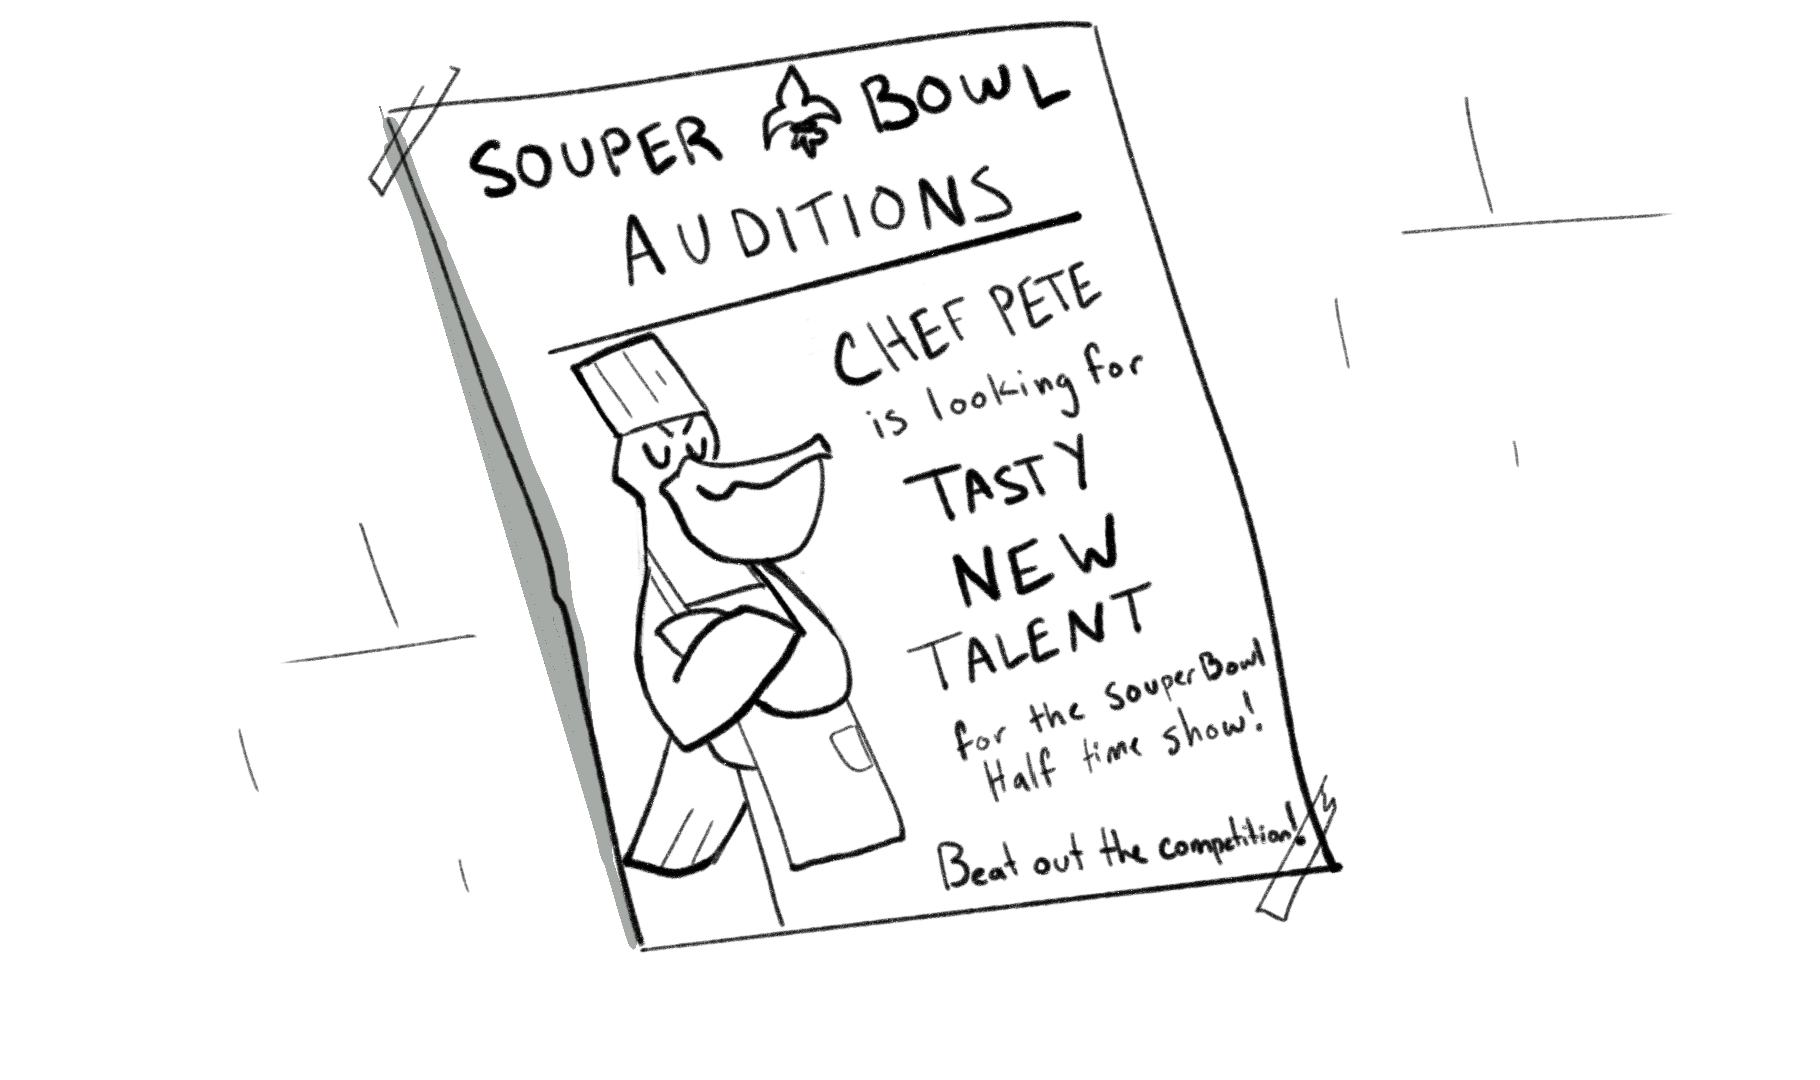 SOUPER BOWL
AUDITIONS
CHEF PETE
is looking for
TASTY
NEW
TALENT
for the SouperBowl
Half time show!
Beat out the competition!